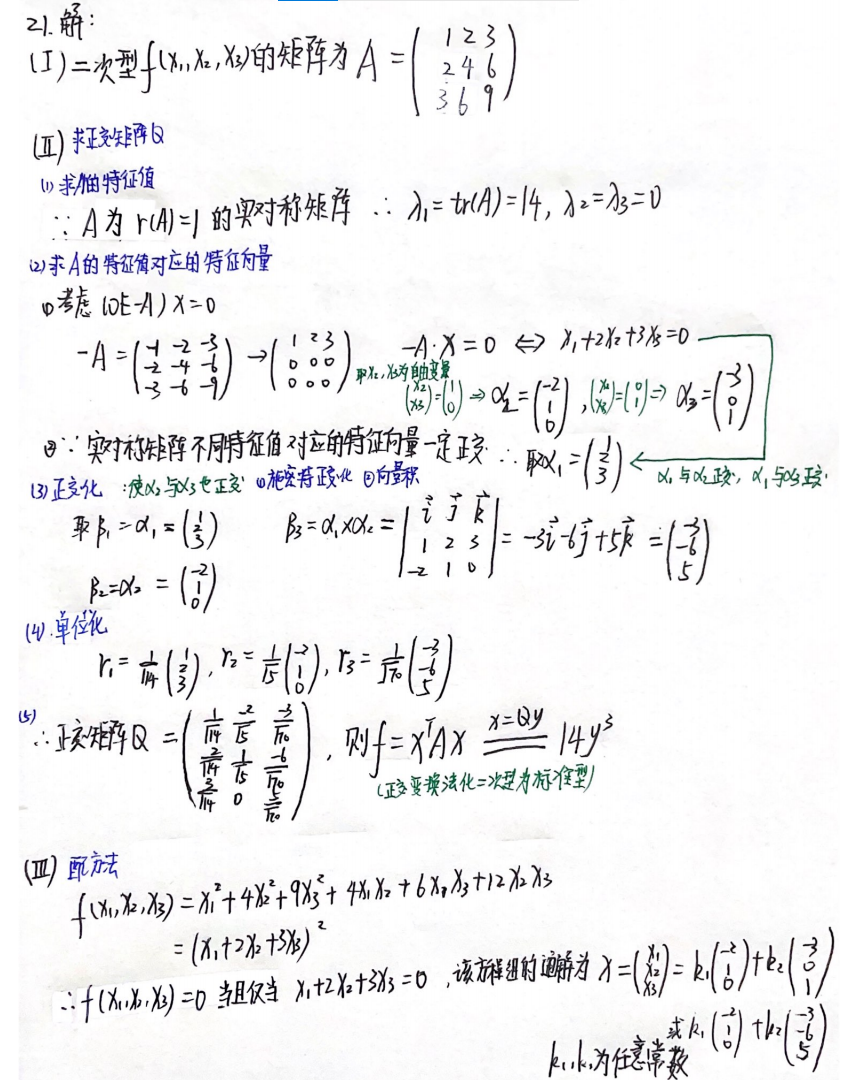 21. 解:
(I) 二次型f(x₁,x₂,x₃)的矩阵为 A = (1 2 3; 2 4 6; 3 6 9)
(II) 求正交矩阵Q
(1) 求A的特征值
∵ A为 r(A)=1 的实对称矩阵 ∴ λ₁=tr(A)=14, λ₂=λ₃=0
(2) 求A的特征值对应的特征向量
① 考虑 (0E-A)x=0
-A = (-1 -2 -3; -2 -4 -6; -3 -6 -9) → (1 2 3; 0 0 0; 0 0 0) -A·x=0 ⇔ x₁+2x₂+3x₃=0
取x₂,x₃为自由变量 (x₂; x₃)=(1; 0) ⇒ α₂=(-2; 1; 0), (x₂; x₃)=(0; 1) ⇒ α₃=(-3; 0; 1)
② ∵ 实对称矩阵不同特征值对应的特征向量一定正交 ∴ 取α₁=(1; 2; 3) ← α₁与α₂正交, α₁与α₃正交
(3) 正交化 :使α₂与α₃也正交 ①施密特正交化 ②向量积
取β₁=α₁=(1; 2; 3) β₃=α₁×α₂=|i⃗ j⃗ k⃗; 1 2 3; -2 1 0|=-3i⃗-6j⃗+5k⃗=(-3; -6; 5)
β₂=α₂=(-2; 1; 0)
(4) 单位化
r₁=1/√14(1; 2; 3), r₂=1/√5(-2; 1; 0), r₃=1/√70(-3; -6; 5)
(5) ∴ 正交矩阵Q=(1/√14 -2/√5 -3/√70; 2/√14 1/√5 -6/√70; 3/√14 0 5/√70), 则f=xᵀAx x=Qy 14y³
(正交变换法化二次型为标准型)
(III) 配方法
f(x₁,x₂,x₃)=x₁²+4x₂²+9x₃²+4x₁x₂+6x₁x₃+12x₂x₃
=(x₁+2x₂+3x₃)²
∴ f(x₁,x₂,x₃)=0 当且仅当 x₁+2x₂+3x₃=0, 该方程组的通解为 x=(x₁; x₂; x₃)=k₁(-2; 1; 0)+k₂(-3; 0; 1)
或k₁(-2; 1; 0)+k₂(-3; -6; 5)
k₁,k₂为任意常数